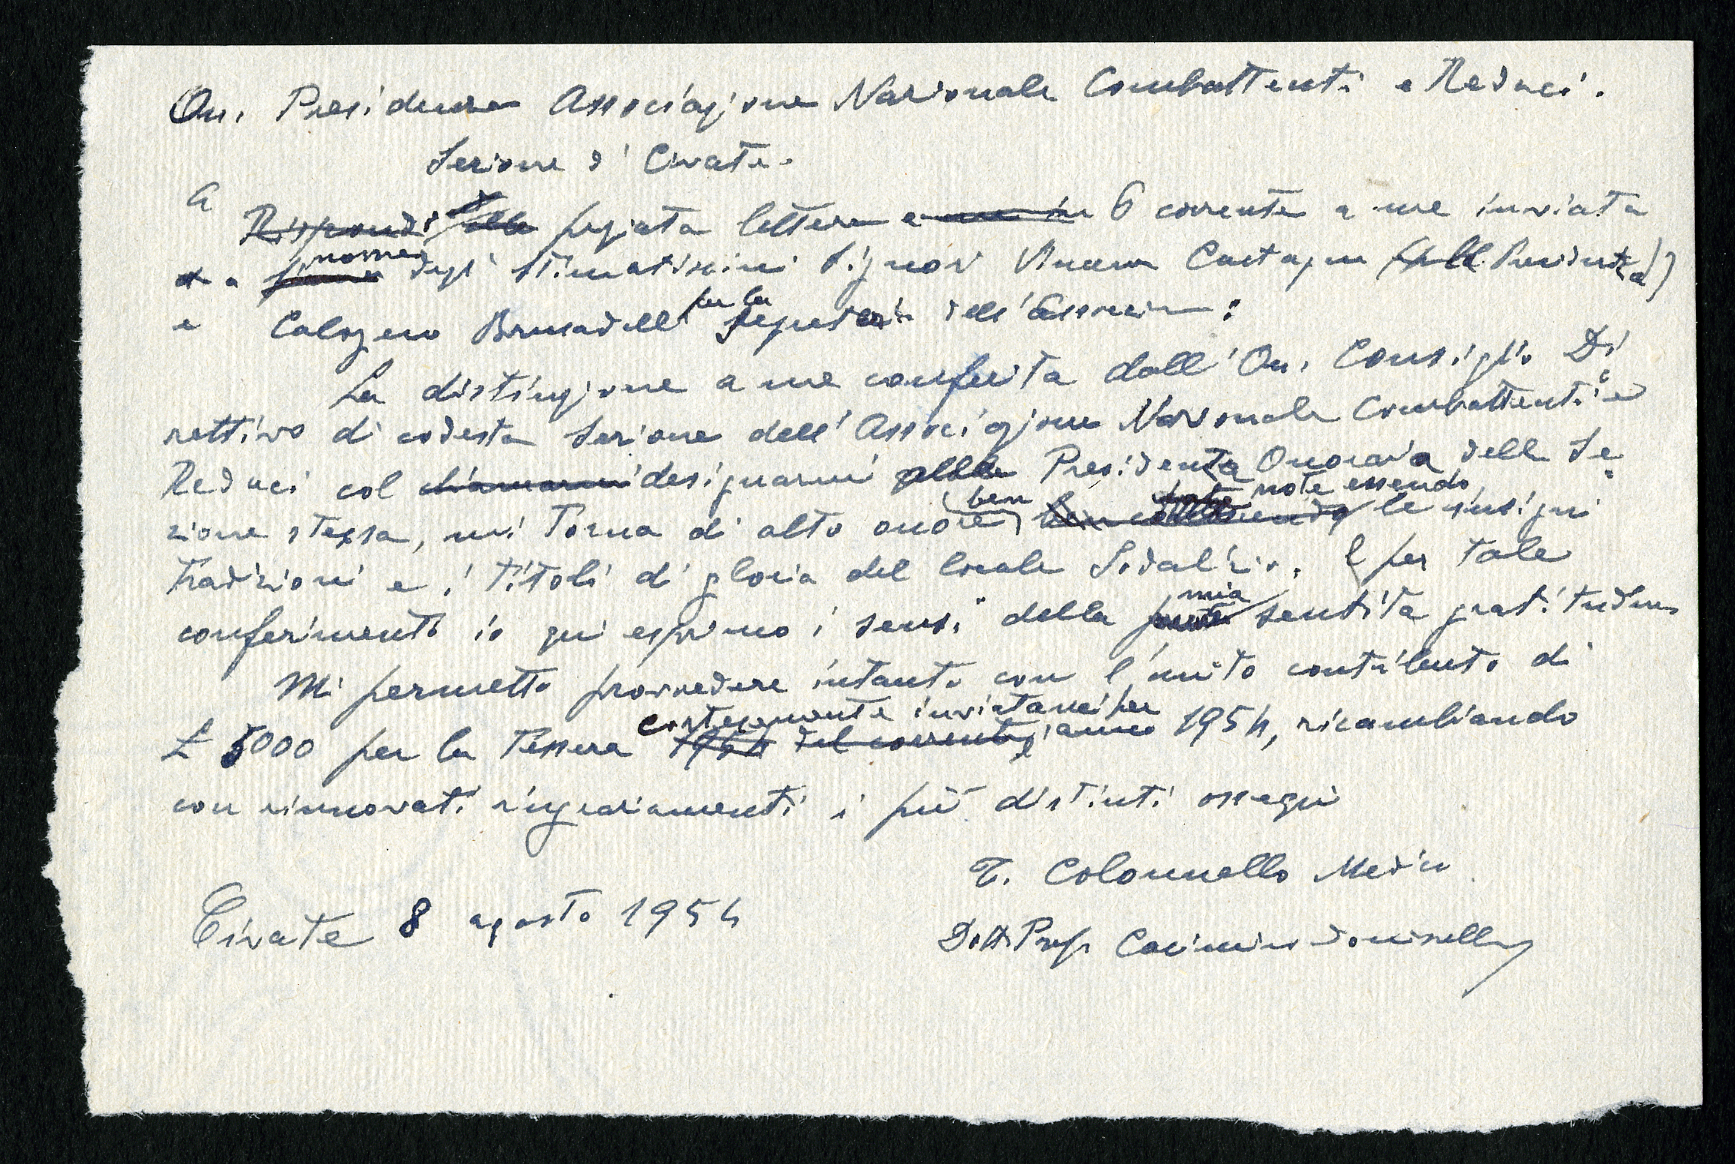 On. Presidenza Associazione Nazionale Combattenti e Reduci.
Sezione di Civate.
A
Rispondo alla pregiata lettera 6 corrente a me inviata
a nome degli stimatissimi Signori Castagna (per la Presidenza)
e Calogero Brusadelli per la segreteria dell'Associazione:
La distinzione a me conferita dall'On. Consiglio Di
rettivo di codesta Sezione dell'Associazione Nazionale Combattenti e
Reduci col chiamarmi designarmi alla Presidenza Onoraria della Se
zione stessa, mi torna di alto onore, ben note essendo le insigni
tradizioni e i titoli di gloria del locale Sodalizio. E per tale
conferimento io qui esprimo i sensi della mia sentita gratitudine
Mi permetto provvedere intanto con l'unito contributo di
£ 5000 per la Tessera cortesemente inviatami per 1954 del corrente anno 1954, ricambiando
con rinnovati ringraziamenti i più distinti ossequi
T. Colonnello Medico
Civate 8 agosto 1954
Dott. Prof. Casimiro Doniselli